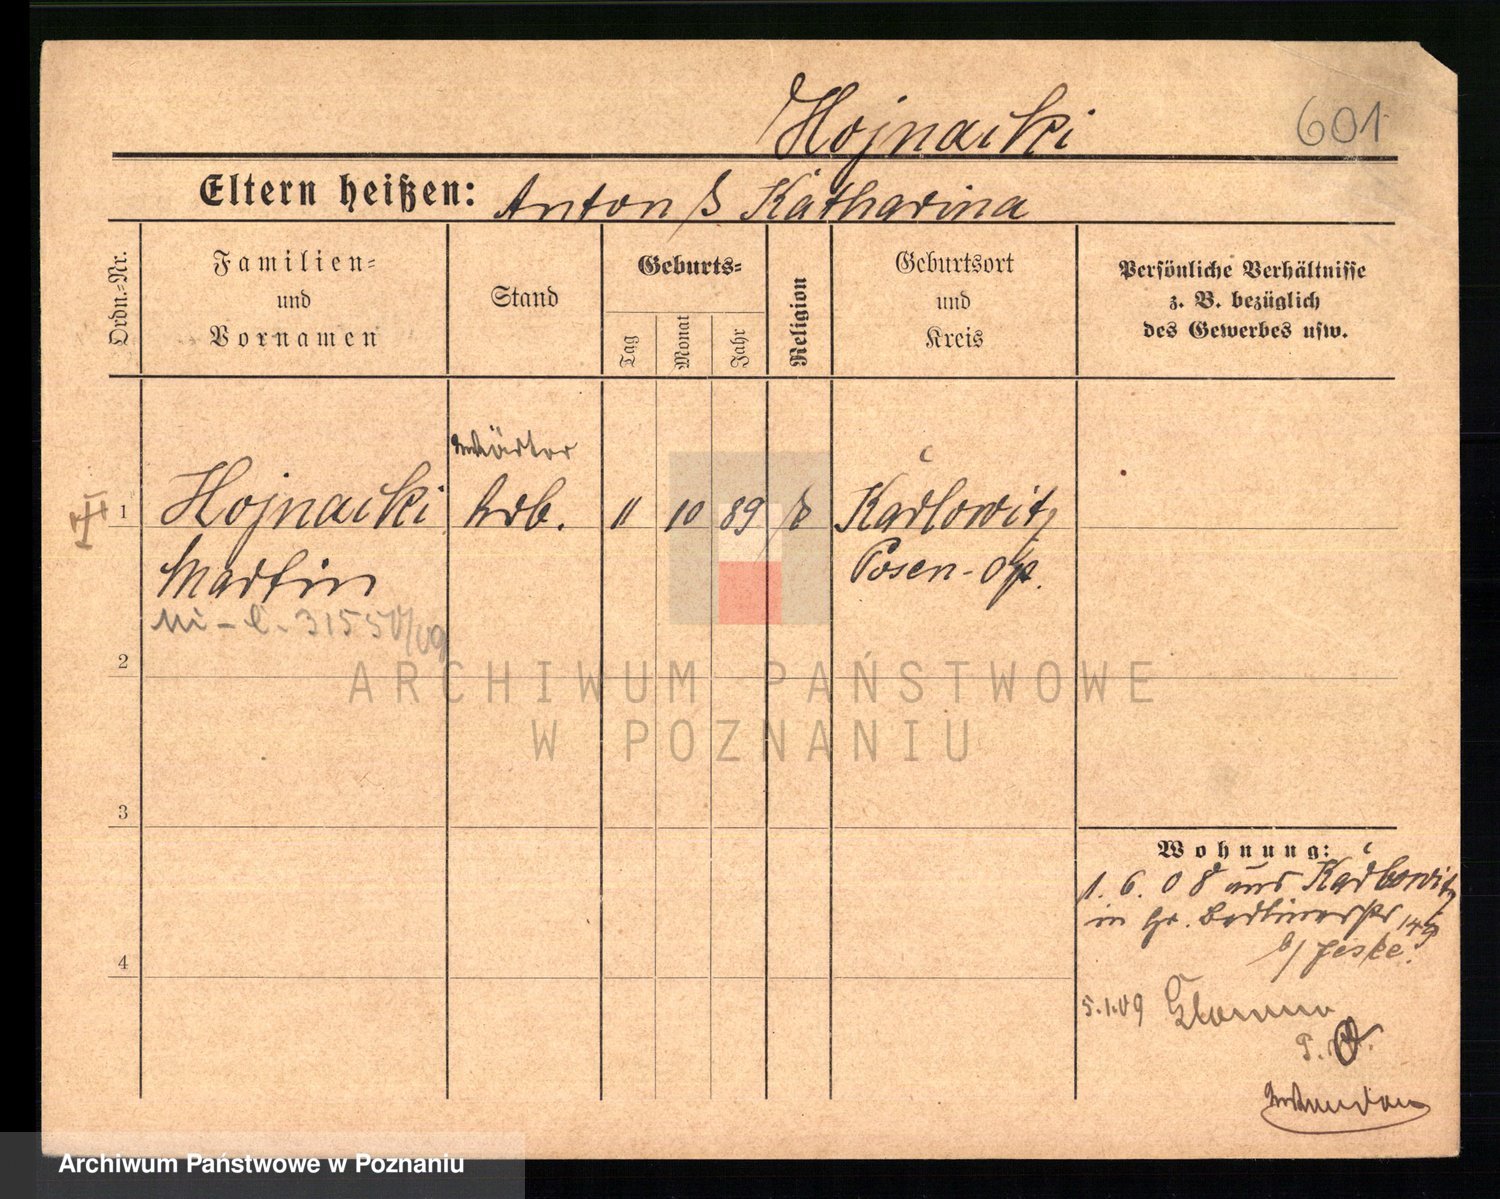 Hojnacki
601
Eltern heißen: Anton & Katharina
Ordn.-Nr.
Familien-
und
Vornamen
Stand
Geburts-
Tag
Monat
Jahr
Religion
Geburtsort
und
Kreis
Persönliche Verhältnisse
z. B. bezüglich
des Gewerbes usw.
Wärter
1 Hojnacki Arb. 11 10 89 Karlowitz
Martin Posen-Ost.
31550/09
2
ARCHIWUM PAŃSTWOWE
W POZNANIU
3
Wohnung:
1. 6. 08 aus Karlowitz
in Gr. Berlinerstr
b/ Jeske.
4
5.1.09
Archiwum Państwowe w Poznaniu